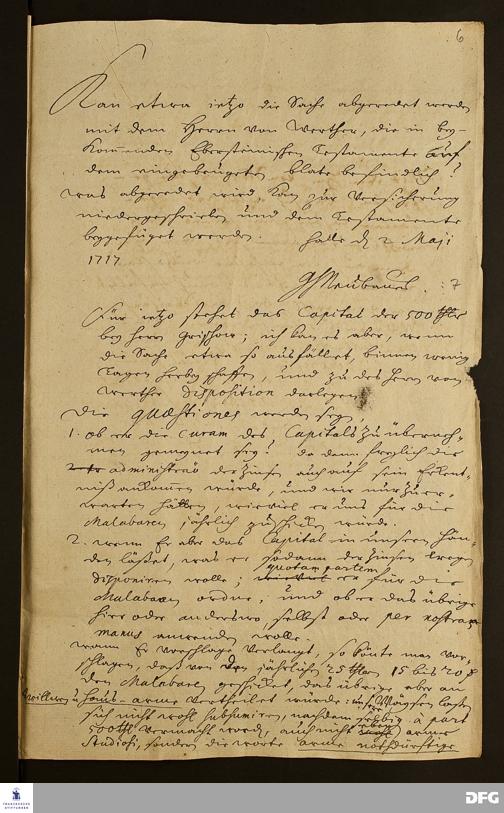 6
Kan etwa ietzo die Sache abgeredet werden
mit dem Herrn von Werther, die in bey-
kommenden Ebersteinischen Testamente auf
dem eingebeugeten blate befindlich?
was abgeredet wird, kan zur Versicherung
niedergeschrieben und dem Testamente
beygefüget werden. Halle d. 2 Maji
1717
GHNeubauer.
Für ietzo stehet das Capital der 500 thlr
bey Herrn Grischow; ich kan es aber, wenn
die Sache etwa so ausfället, binnen wenig
Tagen herbey schaffen, und zu des Herrn von
Werther Disposition darlegen.
Die quæstiones werden seyn,
1. ob er die curam des Capitals zu überneh-
men geneigt sey? da denn freylich die
administratio der Zinsen auch auf sein
ankommen würde, und wir nur zu er-
warten hätten, wieviel er uns für die
Malabaren jährlich zuschicken würde.
2. wenn Er aber das Capital in unseren Hän-
den läßet, was er sodann der Zinsen wegen
disponiren wolle; quotam partem er für die
Malabaren ordne, und ob er das übrige
hier oder anderswo, selbst oder per nostram
manus anwenden wolle.
wann Er Vorschläge verlangt, so könte man vor-
schlagen, daß von den jährlichen 25 thlrn 15 bis 20 f
den Malabaren geschicket, das übrige aber an
Witwen u. haus-arme vertheilet würde: unsere Wäysen lassen
sich nicht wohl subsumiren, nachdem selbig. à part
500 thl vermacht word, auch nicht arme
Studiosi, sondern die worte arme nothdürftige
DFG